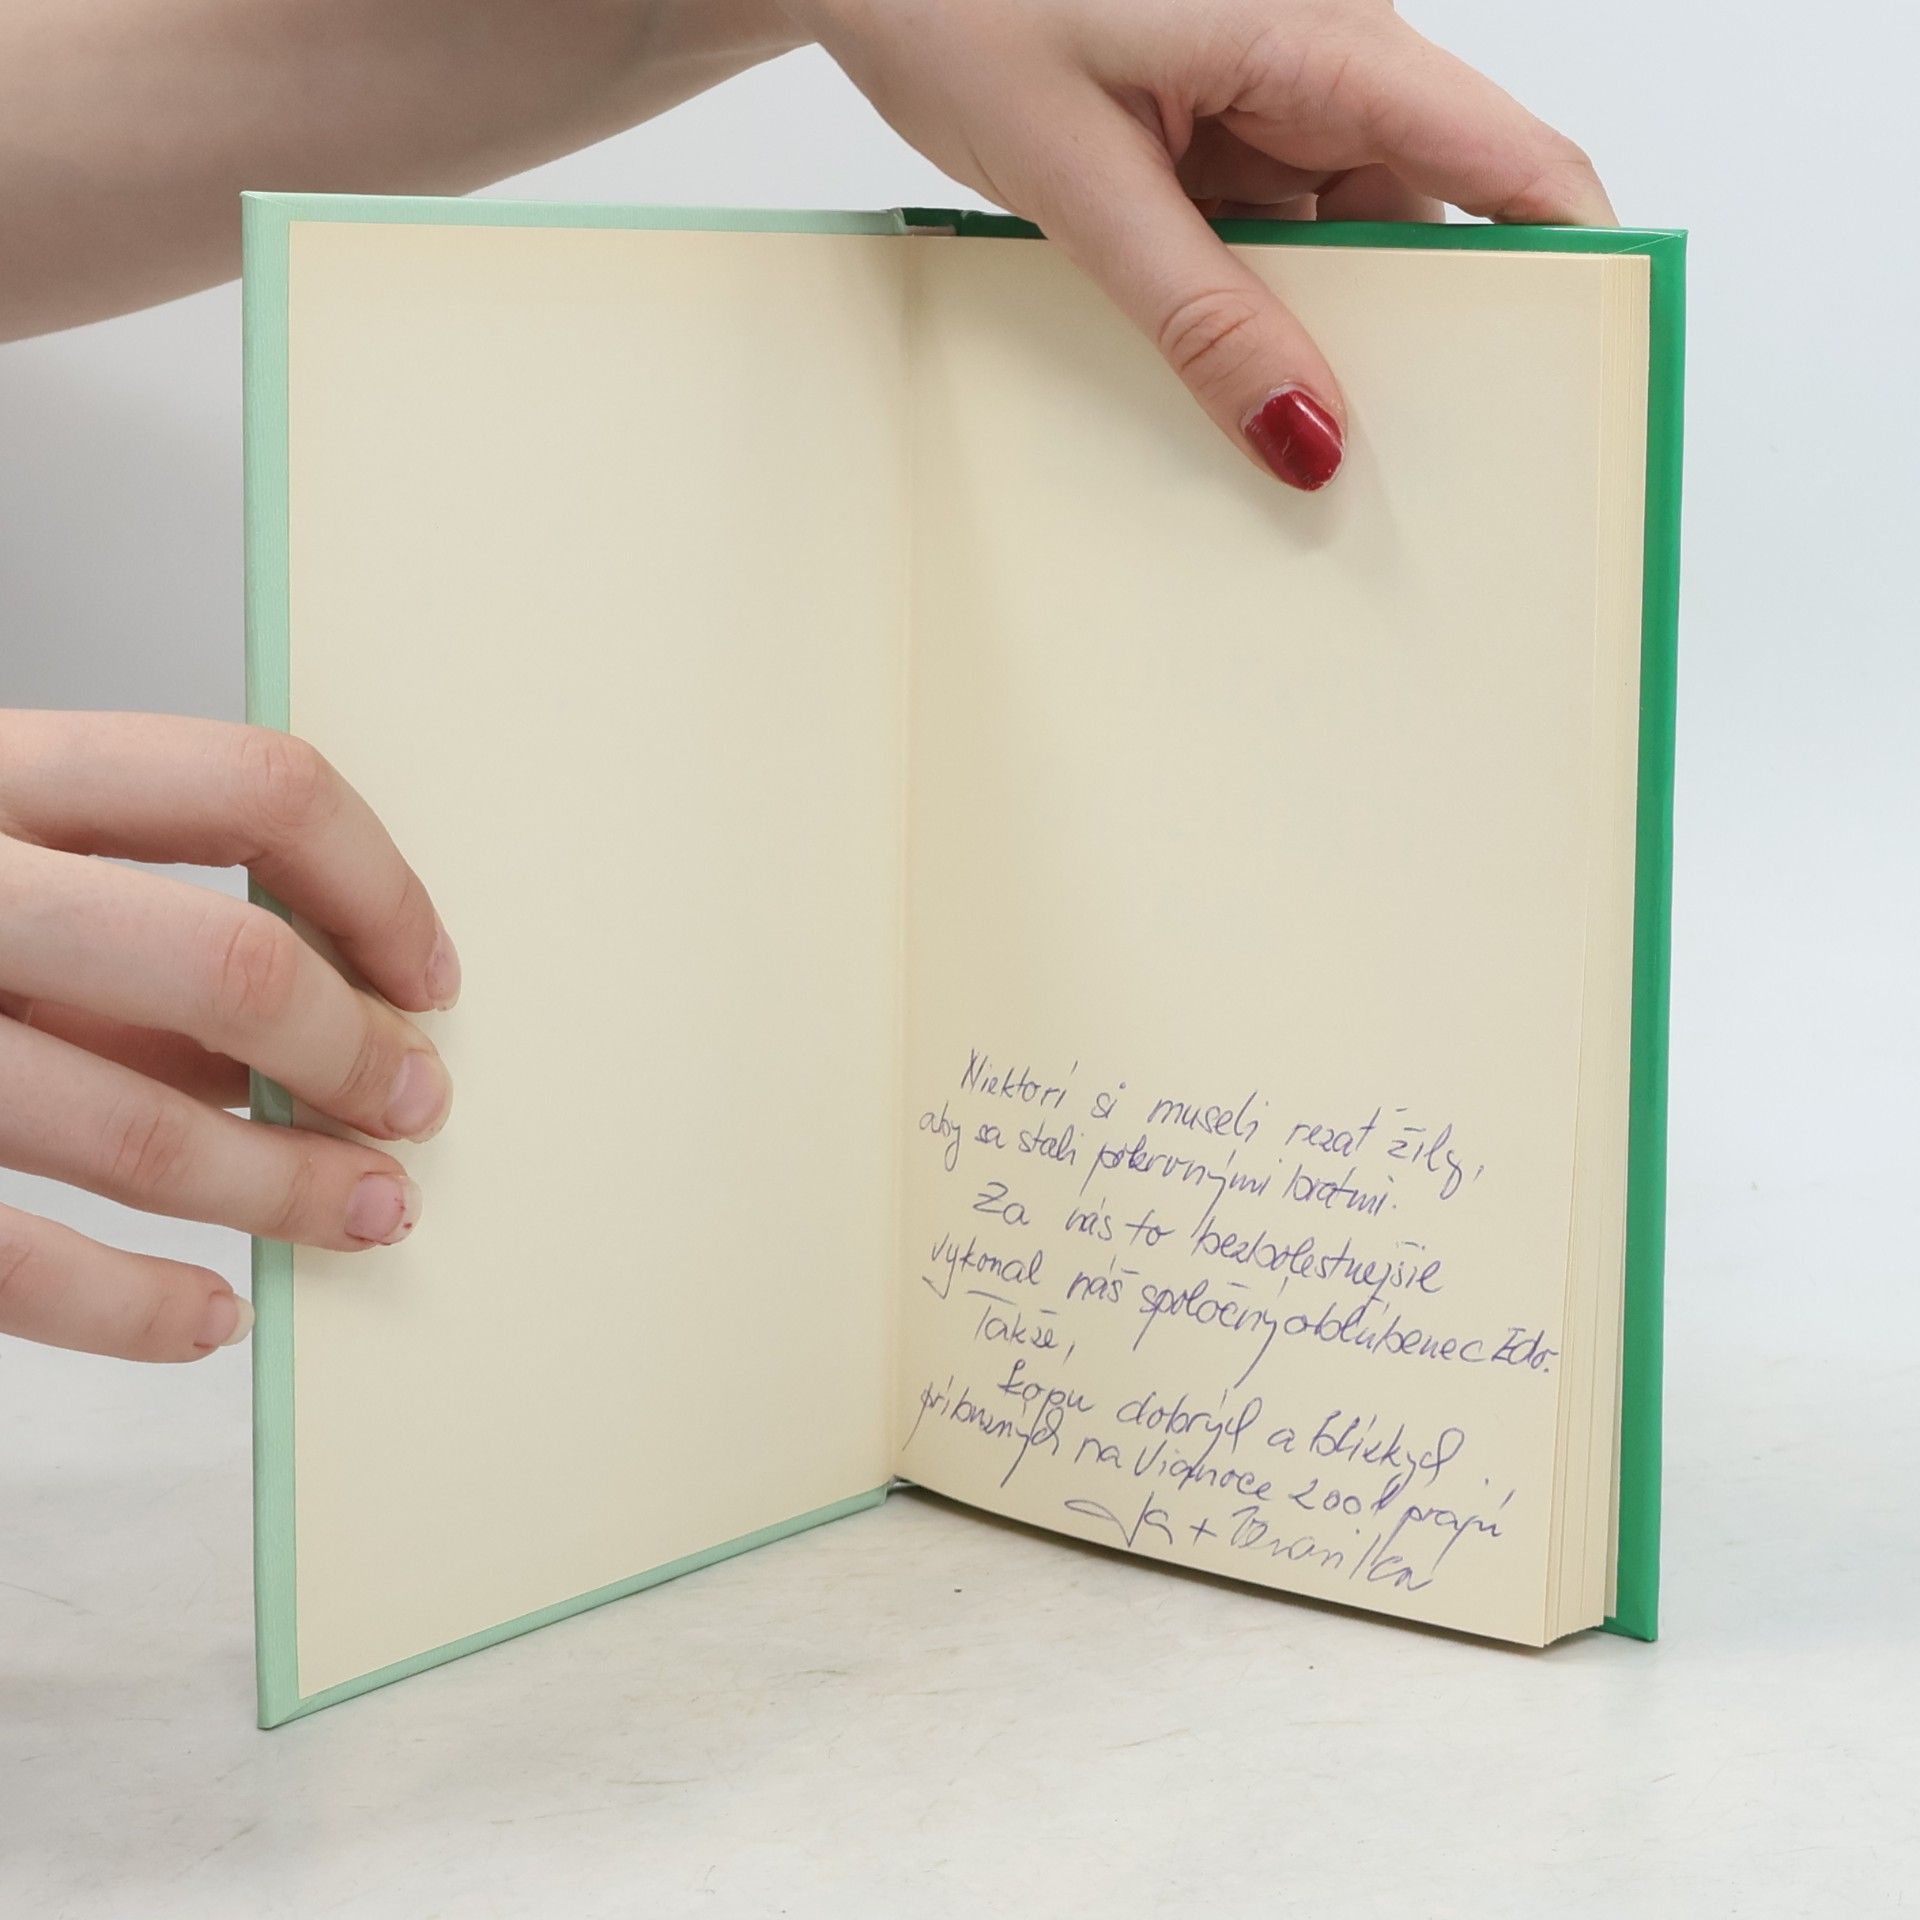 Niektorí si museli rezať žily,
aby sa stali pokrvnými bratmi.
Za nás to bezbolestnejšie
vykonal náš spoločný obľúbenec Edo.
Takže,
kopu dobrých a blízkych
príbuzných na Vianoce 2001 prajú
Ja +